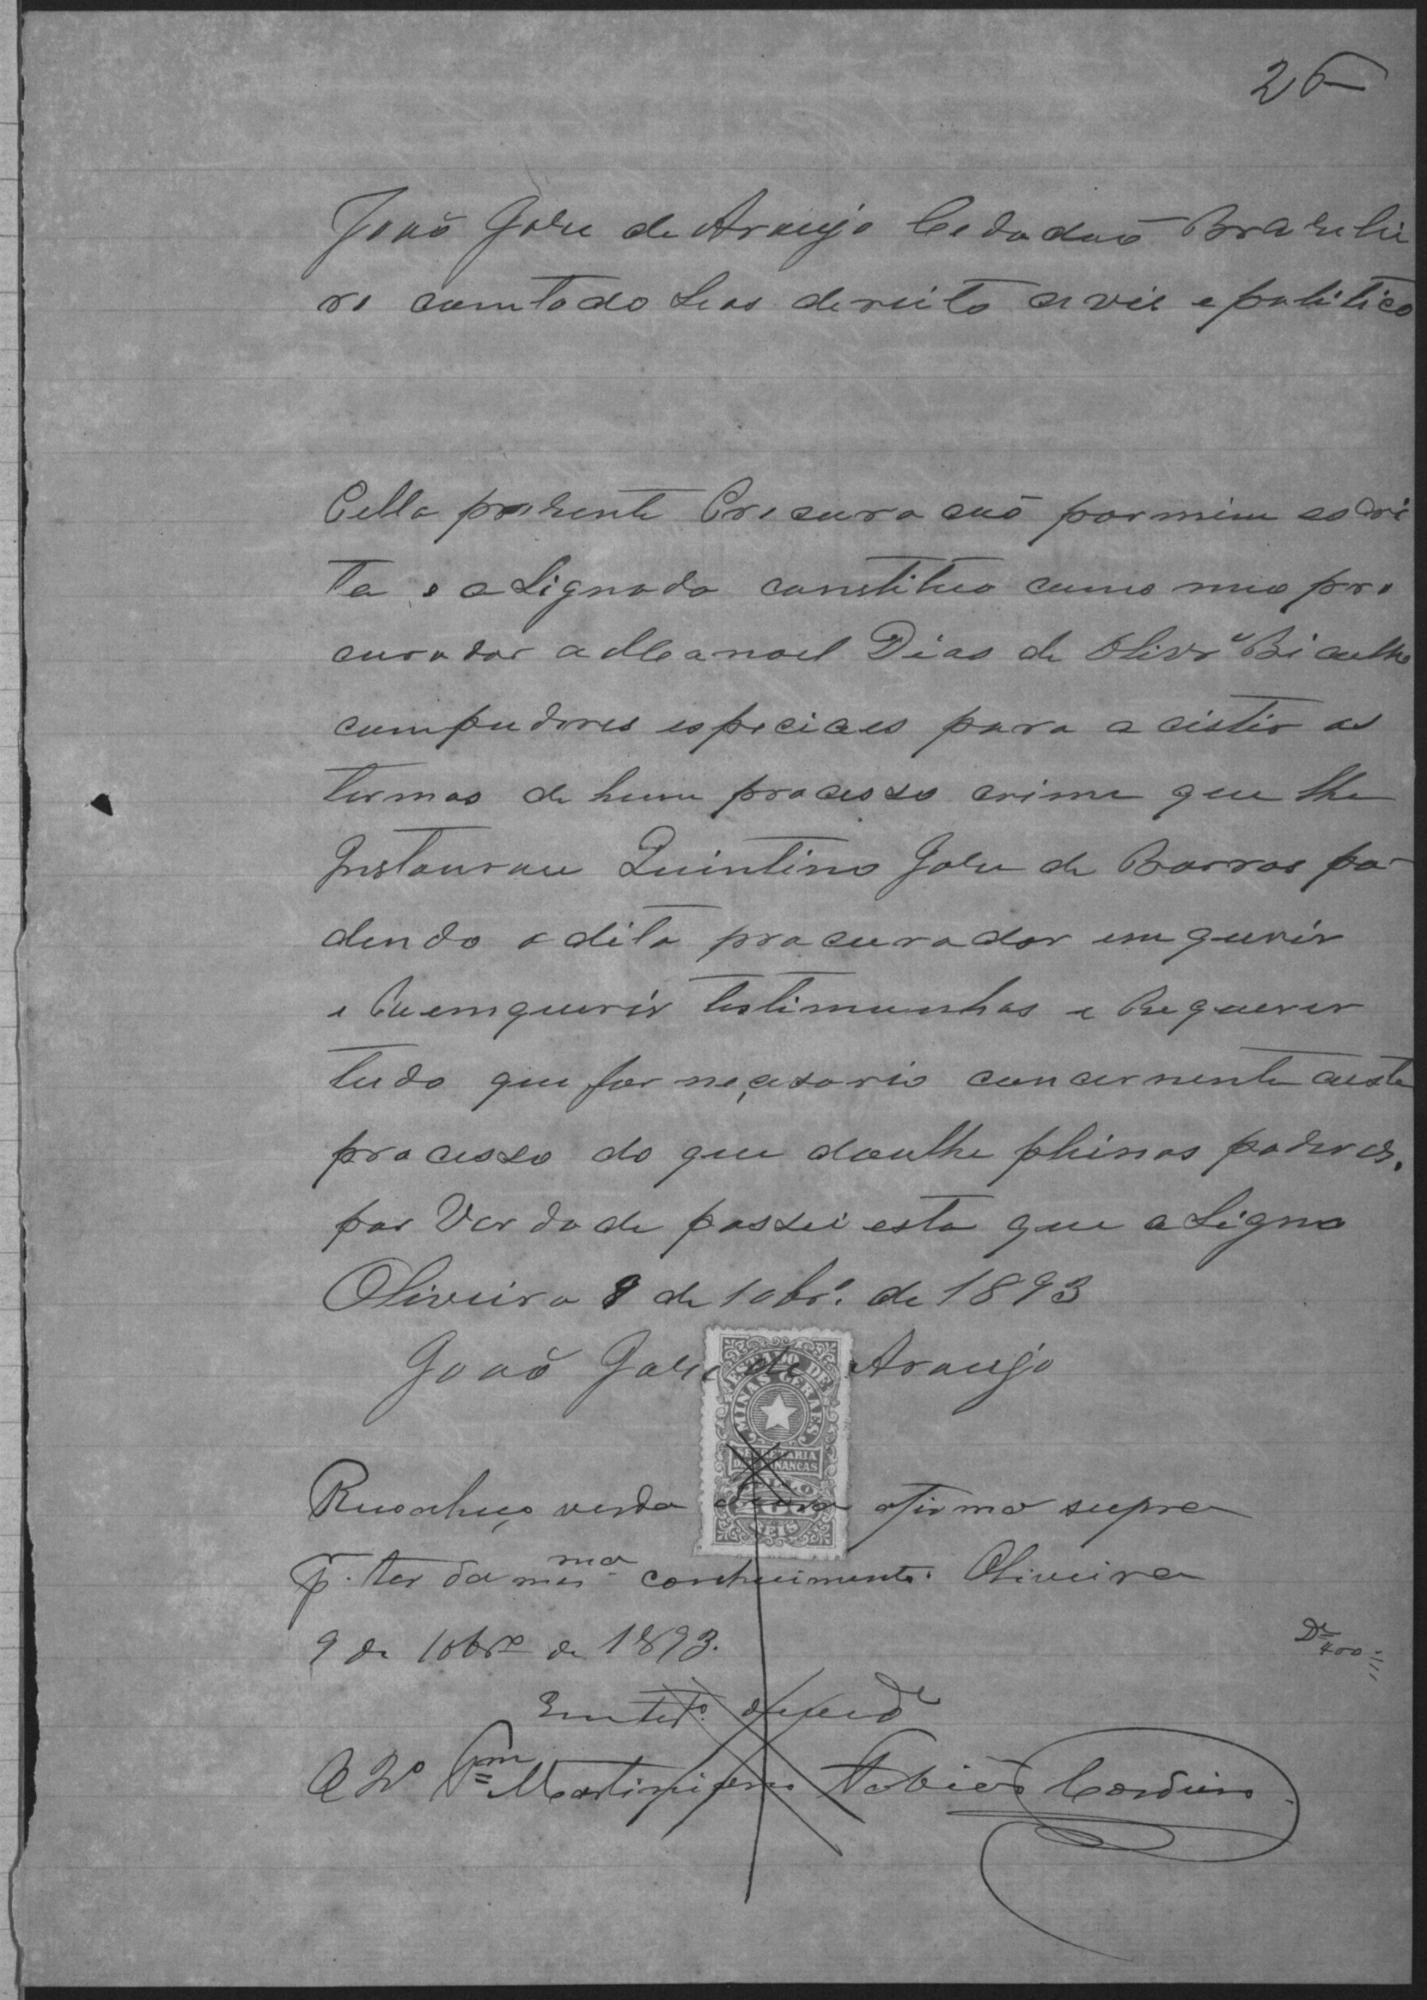 25
João Jose de Araujo Cedadão Brazelei
ro com todo seos dereito civil e politico
Pella prezente Procuracão por mim escri
ta e asignada constituo como meo pro
curador a Manoel Dias de Olivrª Bicalho
com puderes especiaes para acistir os
termos de hum processo crime que lhe
Instaurou Quintino Jose de Barros po
dendo o dito procurador emquerir
e Reemquerir testimunhas e Requerer
tudo que for neçesario concernente aeste
processo do que doulhe plenos poderes.
por Verdade passei esta que asigno
Oliveira 8 de 10brº. de 1893
João Jose de Araujo
ESTADO DE
MINAS GERAES
SECRETARIA
DAS FINANCAS
REIS
Reconheço verda a firma supra
p. ter da mesma conhecimento. Oliveira
9 de 10brº de 1893.
Em testº. da verdᵉ
O 2º Martiniano Tobias Cordeiro
Dº 400